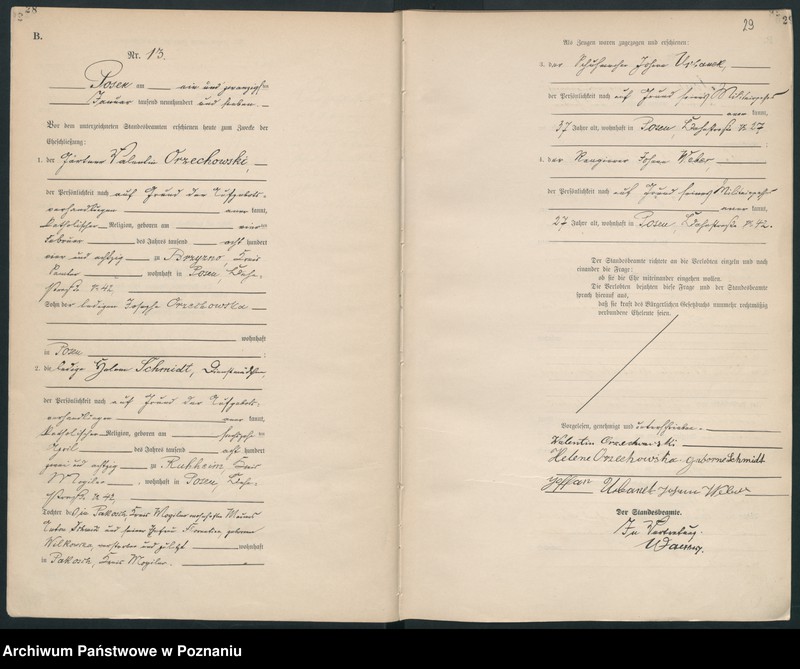 28
B.
Nr. 13.
Posen am ein und zwanzigsten
Januar tausend neunhundert und sieben.
Vor dem unterzeichneten Standesbeamten erschienen heute zum Zwecke der
Eheschließung:
1. der Gärtner Valentin Orzechowski,
der Persönlichkeit nach auf Grund der Aufgebots-
verhandlungen anerkannt,
katholischer Religion, geboren am
Februar des Jahres tausend acht hundert
vier und achtzig zu Kreis
Samter wohnhaft in Posen,
straße N. 42,
Sohn der ledigen Josepha Orzechowska
wohnhaft
in Posen :
2. die ledige Helene Schmidt, Dienstmädchen,
der Persönlichkeit nach auf Grund der Aufgebots-
verhandlungen anerkannt,
katholischer Religion, geboren am
April des Jahres tausend acht hundert
zwei und achtzig zu Kreis
Mogilno, wohnhaft in Posen,
straße N. 42,
Tochter Pakosch, Kreis Mogilno
Schmidt und seiner Ehefrau geborene
verstorben und zuletzt wohnhaft
in Pakosch, Kreis Mogilno.
29
Als Zeugen waren zugezogen und erschienen:
3. der Schuhmacher Johann Urbanek,
der Persönlichkeit nach auf Grund seines Militärpasses
anerkannt,
37 Jahre alt, wohnhaft in Posen, N. 27
4. der Johann Weber,
der Persönlichkeit nach auf Grund seines Militärpasses
anerkannt,
27 Jahre alt, wohnhaft in Posen, N. 42.
Der Standesbeamte richtete an die Verlobten einzeln und nach
einander die Frage:
ob sie die Ehe miteinander eingehen wollen.
Die Verlobten bejahten diese Frage und der Standesbeamte
sprach hierauf aus,
daß sie kraft des Bürgerlichen Gesetzbuchs nunmehr rechtmäßig
verbundene Eheleute seien.
Vorgelesen, genehmigt und unterschrieben.
Valentin Orzechowski
Helene Orzechowska geborne Schmidt
Urbanek Johann Weber
Der Standesbeamte.
In Vertretung.
Archiwum Państwowe w Poznaniu